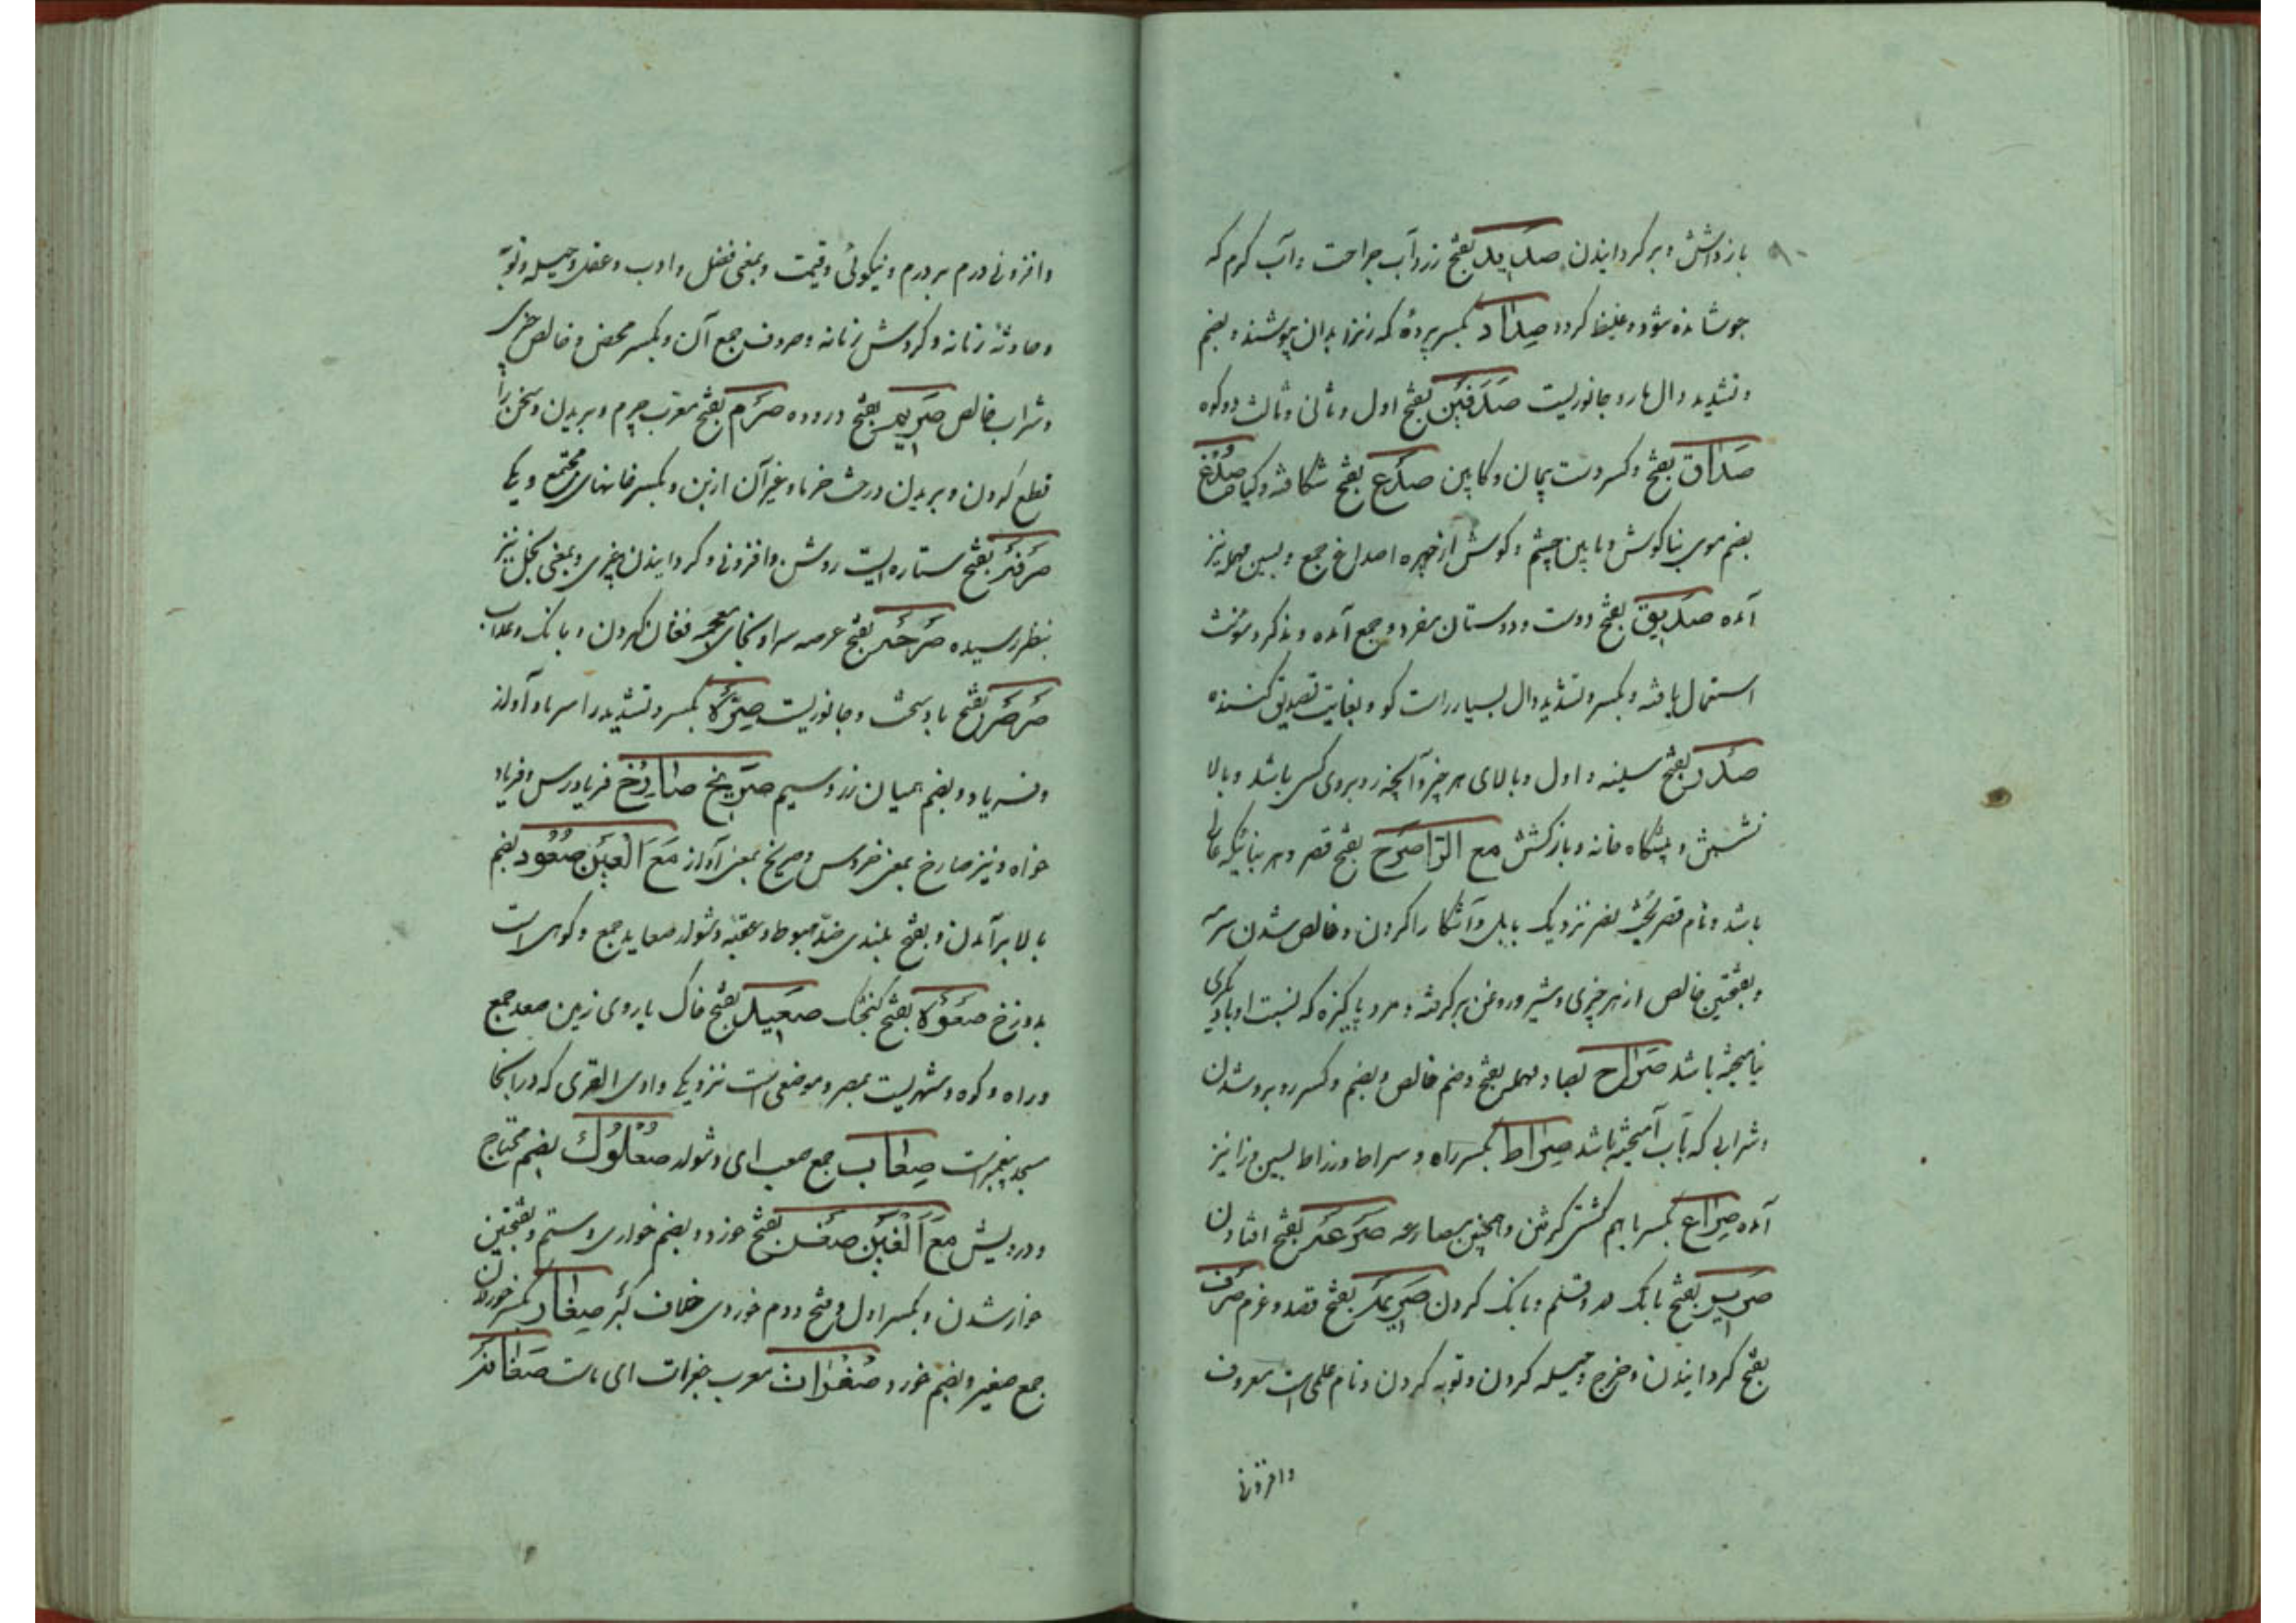 بازداشتن و برگردانیدن صدید بفتح زردآب جراحت و آب گرم که
جوشانده شود و غلیظ گردد صداد بکسر پرده که زنرا بدان پوشند و بضم
و تشدید دال مار و جانوریست صدفین بفتح اول و ثانی و ثالث دو کوه
صداق بفتح و کسر دست پیمان و کابین صدع بفتح شکافته و گیاه صدغ
بضم موی بناگوش و مابین چشم و گوش از چهره اصداغ جمع و بسین مهمله نیز
آمده صدیق بفتح دوست و دوستان مفرد و جمع آمده و مذکر و مؤنث
استعمال یافته و بکسر و تشدید دال بسیار راست گو و بغایت تصدیق کننده
صدر بفتح سینه و اول و بالای هر چیز و آنچه روبروی کسی باشد و بالا
نشین و پیشگاه خانه و بازگشتن مع الرا صرح بفتح قصر و هر بنائیکه عالی
باشد و نام قصر بخت نصر نزدیک بابل و آشکارا کردن و خالص شدن
و بفتحتین خالص از هر چیزی و شیر و روغن برگرفته و مرد پاکیزه که نسبت او با دیگری
نیامیخته باشد صراح بصاد مهمله بفتح و ضم خالص و بضم و کسر روبرو شدن
و شرابی که بآب آمیخته باشد صراط بکسر راه و سراط و زراط بسین و زا نیز
آمده صراع بکسر با هم کشتی گرفتن و همچنین مصارعه صرعه بفتح افتادن
صریر بفتح بانک در و قلم و بانک کردن صریمه بفتح قصد و عزم صرف
بفتح گردانیدن و خرج و حیله کردن و توبه کردن و نام علمی است معروف
وافزونی
وافزونی درم بر درم و نیکوئی و قیمت و بمعنی فضل و ادب و عقل و حیله و توبه
و حادثه زمانه و گردش زمانه و صروف جمع آن و بکسر محض و خالص چیزی
و شراب خالص صریم بفتح دروده صرم بفتح معرب چرم و بریدن و سخن را
قطع کردن و بریدن درخت خرما و غیر آن از بن و بکسر خانهای مجتمع و یکجا
صرفه بفتح ستاره ایست روشن و افزونی و گردانیدن چیزی و بمعنی بخل نیز
بنظر رسیده صرحه بفتح عرصه سرا و بخای معجمه فغان کردن و بانک و عذاب
صرصر بفتح باد سخت و جانوریست صرة بکسر و تشدید را سرما و آواز
و فریاد و بضم همیان زر و سیم صریخ صارخ فریادرس و فریاد
خواه و نیز صارخ بمعنی خروس و صریخ بمعنی آواز مع العین صعود بضم
بالا برآمدن و بفتح بلندی ضد هبوط و عقبه دشوار صعاید جمع و کوهی است
بدوزخ صعوة بفتح گنجشک صعید بفتح خاک یا روی زمین صعد جمع
و راه و کوه و شهریست بمصر و موضعی است نزدیک وادی القری که در آنجا
مسجد پیغمبر است صعاب جمع صعب ای دشوار صعلوک بضم محتاج
و درویش مع الغین صغر بفتح خورد و بضم خواری و ستم و بفتحتین
خوار شدن و بکسر اول و فتح دوم خوردی خلاف کبر صغار بکسر خوردان
جمع صغیر و بضم خورد صغرات معرب جغرات ای ماست صغانه